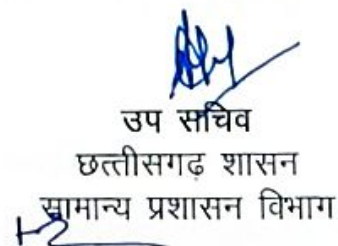 उप सचिव
छत्तीसगढ़ शासन
सामान्य प्रशासन विभाग